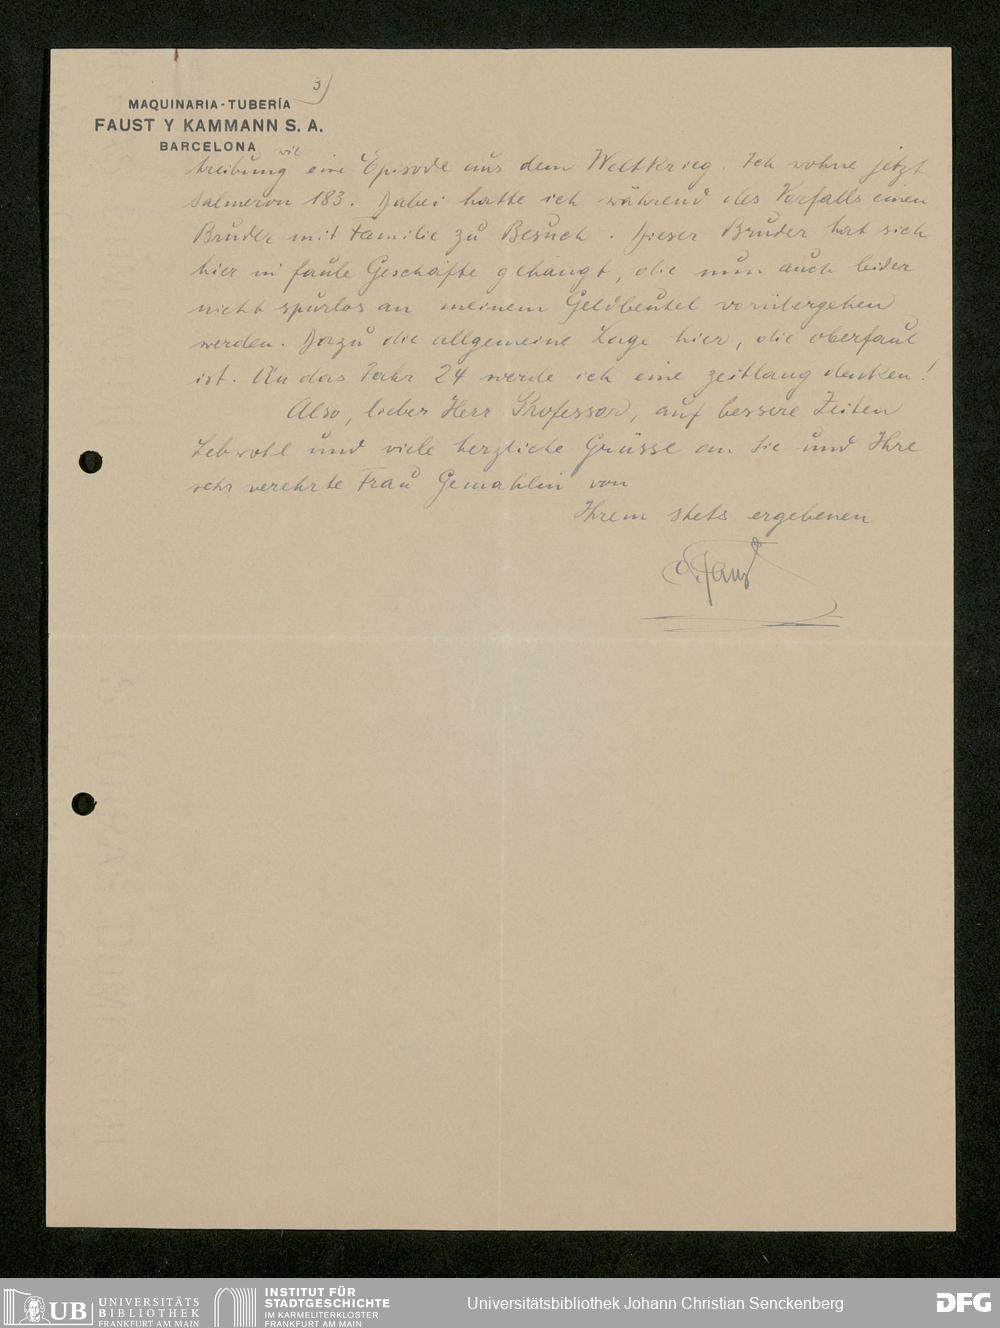 3)
MAQUINARIA-TUBERÍA
FAUST Y KAMMANN S. A.
BARCELONA
wie
treibung eine Episode aus dem Weltkrieg. Ich wohne jetzt
Salmeron 183. Dabei hatte ich während des Vorfalls einen
Bruder mit Familie zu Besuch. Dieser Bruder hat sich
hier in faule Geschäfte gehängt, die nun auch leider
nicht spurlos an meinem Geldbeutel vorübergehen
werden. Dazu die allgemeine Lage hier, die oberfaul
ist. An das Jahr 24 werde ich eine zeitlang denken!
Also, lieber Herr Professor, auf bessere Zeiten
Lebwohl und viele herzliche Grüsse an Sie und Ihre
sehr verehrte Frau Gemahlin von
Ihrem stets ergebenen
Faust
UB UNIVERSITÄTS
BIBLIOTHEK
FRANKFURT AM MAIN
INSTITUT FÜR
STADTGESCHICHTE
IM KARMELITERKLOSTER
FRANKFURT AM MAIN
Universitätsbibliothek Johann Christian Senckenberg
DFG